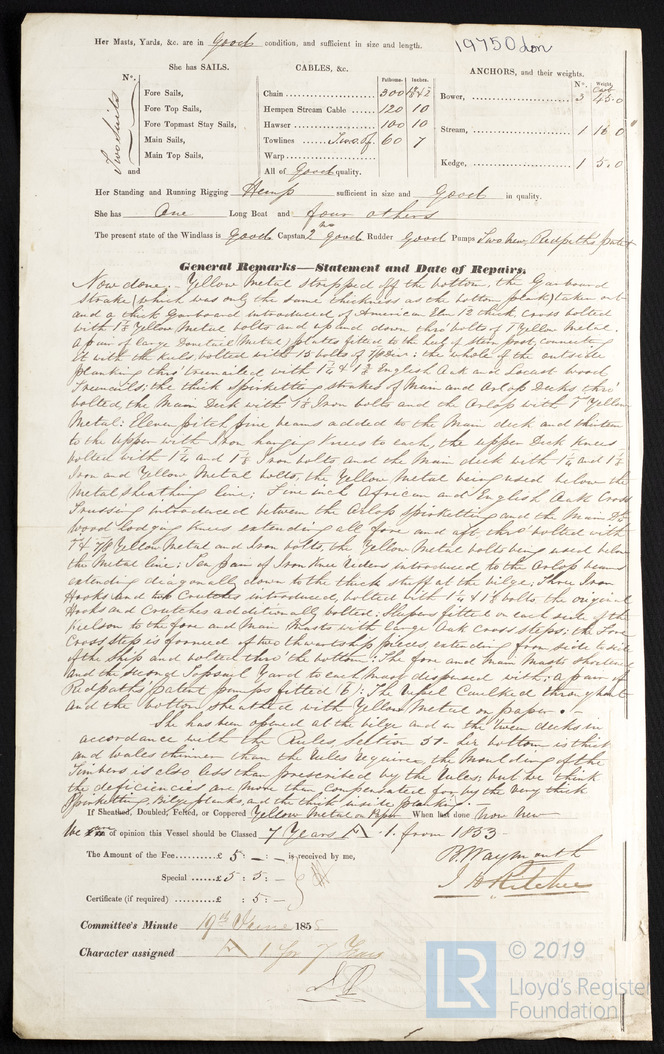 Her Masts, Yards, &c. are in Good condition, and sufficient in size and length.
19750 Lon
She has SAILS. CABLES, &c. ANCHORS, and their weights.
Nº. Fathoms. Inches. Nº. Weight. Cwt
Two Suits
Fore Sails, Chain 300 Bower, 3 45.0
Fore Top Sails, Hempen Stream Cable 120 10
Fore Topmast Stay Sails, Hawser 100 10 Stream, 1 16.0
Main Sails, Towlines Two of 60 7
Main Top Sails, Warp
and All of Good quality. Kedge, 1 5.0
Her Standing and Running Rigging Hemp sufficient in size and Good in quality.
She has One Long Boat and four others
The present state of the Windlass is Good Capstan 2 good Rudder Good Pumps Two New, Redpaths patent
General Remarks—Statement and Date of Repairs.
Now done. Yellow Metal stripped off the bottom, the Garboard
Strake (which was only the same thickness as the bottom plank) taken out
and a thick Garboard introduced of American Elm 12 thick cross bolted
with Yellow Metal bolts and up and down thro' bolts of Yellow Metal.
A pair of large Dovetail (Metal) plates fitted to the heel of stern post, connecting
it with the keel, bolted with 15 bolts of : the whole of the outside
planking thro' trenailed with English Oak and Locust wood
Treenails; the thick spirketting strakes of Main and Orlop Decks thro'
bolted, the Main Deck with Iron bolts and the Orlop with 1" Yellow
Metal: Eleven pitch pine beams added to the Main deck and thirteen
to the upper with Iron hanging Knees to each, the upper Deck knees
bolted with Iron bolts, and the Main deck with
Iron and Yellow Metal bolts, the Yellow Metal being used below the
Metal sheathing line; Five inch African and English Oak Cross
Trussing introduced between the Orlop spirketting and the Main Dk
wood lodging knees extending all fore and aft thro' bolted with
Yellow Metal and Iron bolts, the Yellow Metal bolts being used below
the Metal line; Ten pair of Iron knee Riders introduced to the Orlop beams
extending diagonally down to the thick stuff at the bilge; Three Iron
Hooks and two Crutches introduced, bolted with bolts, the original
Hooks and Crutches additionally bolted; Sleepers fitted on each side of the
keelson to the fore and Main Masts with large Oak cross steps; the Fore
Cross step is formed of two thwartship pieces, extending from side to side
of the Ship and bolted thro' the bottom: The fore and main Masts shortened
and the second Topsail Yard to each mast dispensed with; a pair of
Redpaths' Patent pumps fitted: The Vessel Caulked throughout
and the bottom sheathed with Yellow Metal on paper.
She has been opened at the bilge and in the 'tween decks in
accordance with the Rules, section 51 - her bottom is thick
and wales thinner than the Rules require, the Moulding of the
Timbers is also less than prescribed by the Rules; but we think
the deficiencies are more than compensated for by the very thick
Spirketting, Bilge planks, and the thick inside planking.
If Sheathed, Doubled, Felted, or Coppered Yellow Metal on Paper When last done Now New
We are of opinion this Vessel should be Classed 7 Years A. 1. from 1853
The Amount of the Fee £ 5 : - : - is received by me,
B. Waymouth
Special £ 5 : 5 : -
J H Ritchie
Certificate (if required) £ : 5 : -
Committee's Minute 19th June 1855
Character assigned A 1 for 7 Years
© 2019
LR
Lloyd's Register
Foundation